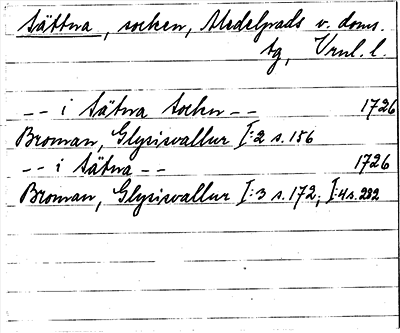 Sättna, socken, Medelpads v. doms.
tg, Vnl. l.
-- i Sätna Sockn -- 1726
Broman, Glysisvallur I:2 s. 156
-- i Sätna -- 1726
Broman, Glysisvallur I:3 s. 172; I:4 s. 282